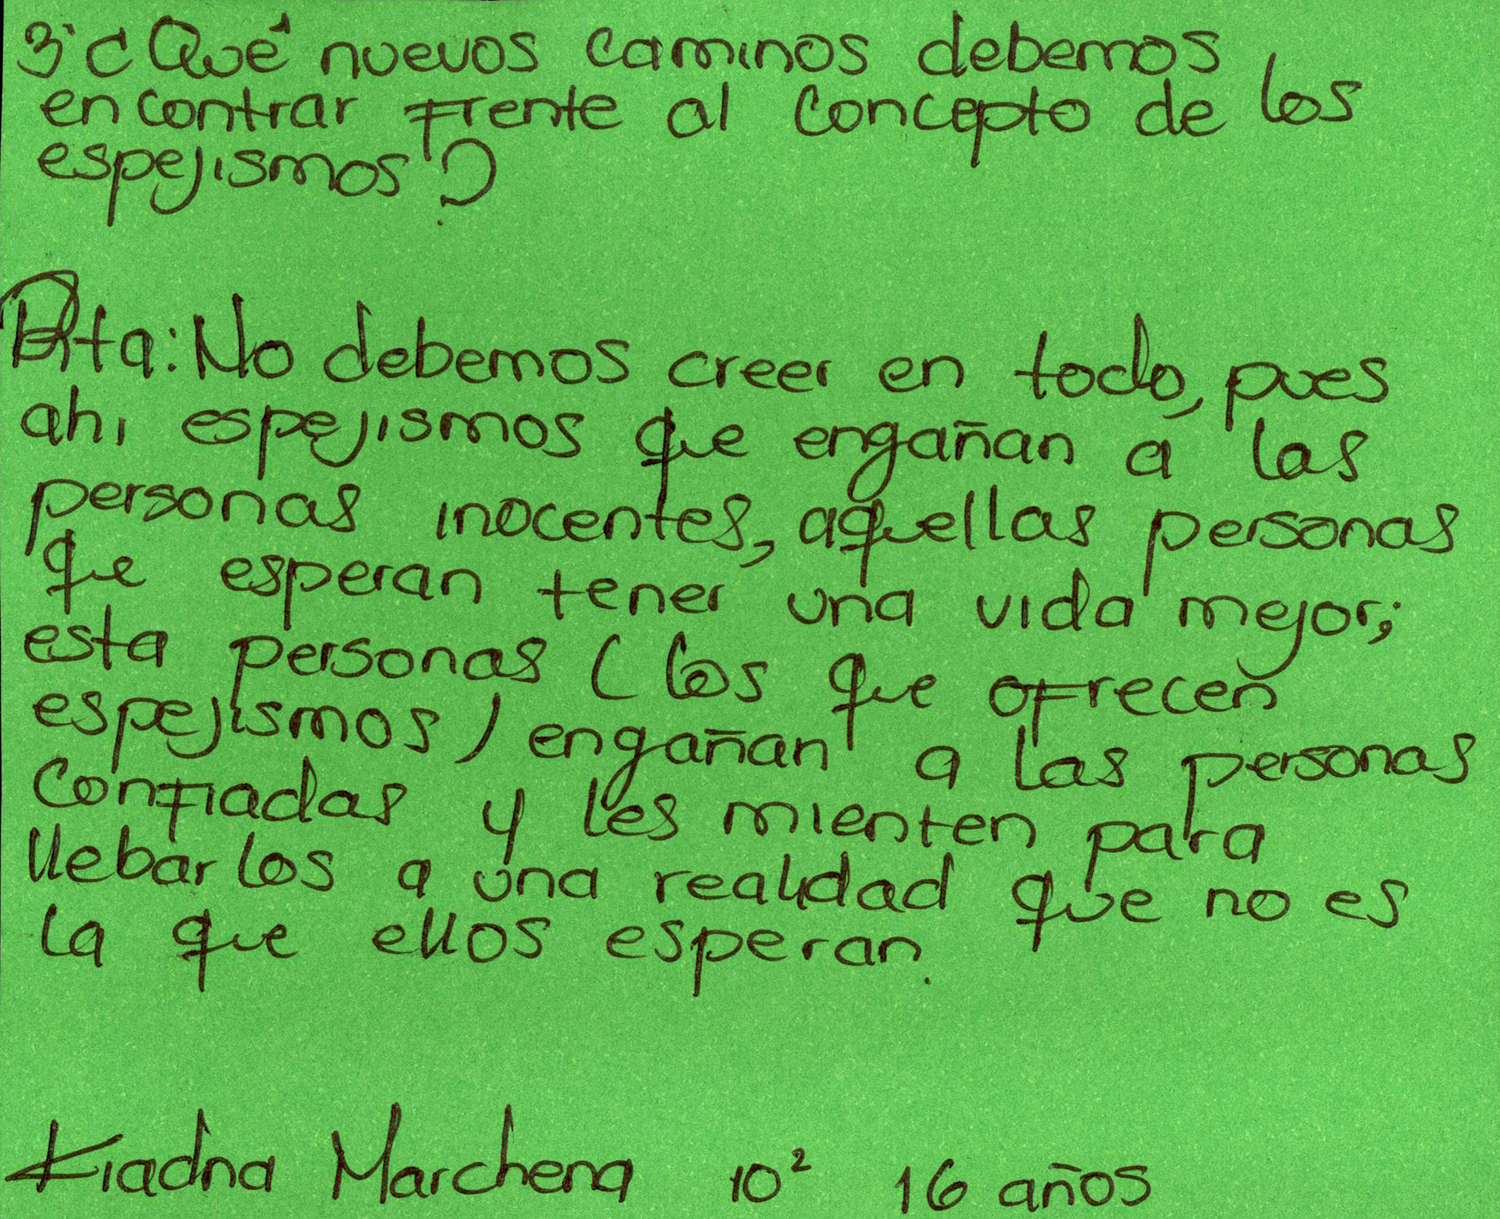 3. ¿Qué nuevos caminos debemos
encontrar frente al concepto de los
espejismos?
Rta: No debemos creer en todo, pues
ahi espejismos que engañan a las
personas inocentes, aquellas personas
que esperan tener una vida mejor;
esta personas (los que ofrecen
espejismos) engañan a las personas
confiadas y les mienten para
llebarlos a una realidad que no es
la que ellos esperan.
Marchena 10² 16 años